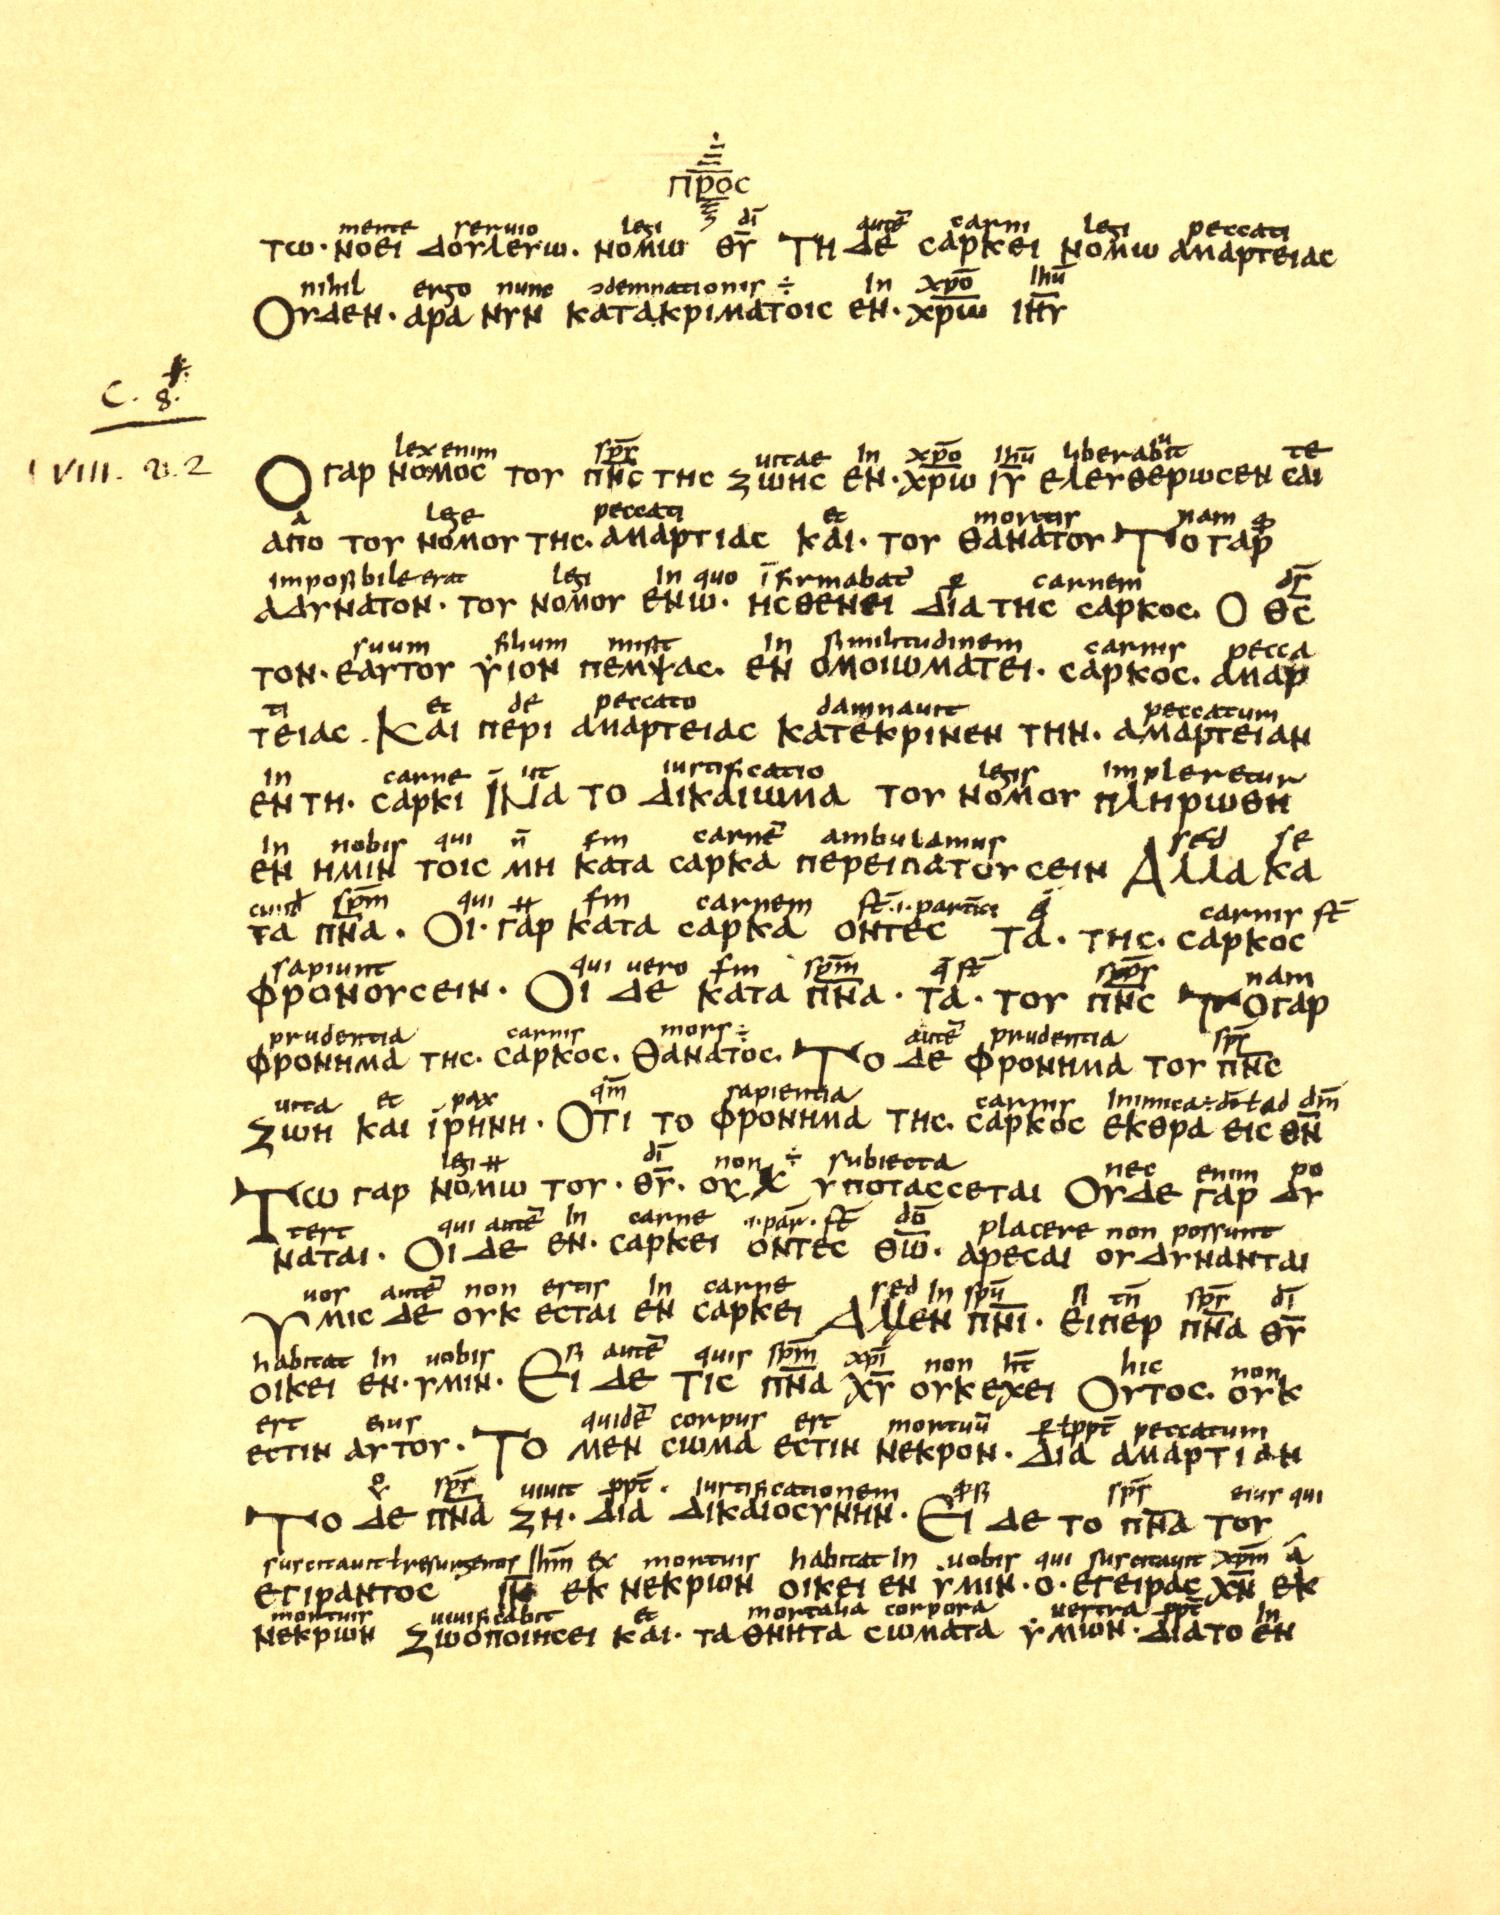 προς
mente seruio legi dī autē carni legi peccati
τω· νοει δουλευω. νομω θ̅υ̅ Τη δε σαρκει νομω αμαρτειας
nihil ergo nunc ɔdemnationis ÷ In xp̄o Ihū
Ουδεν· αρα νυν κατακριματοις εν· χρ̅ω̅ ιη̅υ̅
C. 8.
VIII. v. 2
lex enim sp̄s uitae In xp̄o Ihū liberabit te
Ο γαρ νομος του π̅ν̅ς̅ της ζωης εν· χρ̅ω̅ ι̅υ̅ ελευθερωσεν σαι
a lege peccati et mortis nam
απο του νομου της. αμαρτιας και· του θανατου Το γαρ
Impossibile erat legi In quo īfirmabat̄ carnem ds̄
αδυνατον· του νομου ενω· ησθενει δια της σαρκος. Ο θ̅ς̅
suum filium misit In similitudinem carnis pecca
τον· εαυτου υιον πεμψας. εν ομοιωματει· σαρκος. αμαρ
ti et de peccato damnauit peccatum
τειας. Και περι αμαρτειας κατεκρινεν την· αμαρτειαν
In carne ut iustificatio legis Impleretur
εν τη· σαρκι Ινα το δικαιωμα του νομου πληρωθη
In nobis qui n̄ sm carnē ambulamus sed se
εν ημιν τοις μη κατα σαρκα περειπατουσειν Αλλα κα
cund sp̄m qui sm carnem carnis st̄
τα π̅ν̅α̅. Οι· γαρ κατα σαρκα οντες τα· της· σαρκος
sapiunt qui uero sm sp̄m q̄ st̄ sp̄s nam
φρονουσειν· Οι δε κατα π̅ν̅α̅· τα· του π̅ν̅ς̅ Το γαρ
prudentia carnis mors ÷ autē prudentia sp̄s
φρονημα της· σαρκος. θανατος. Το δε φρονημα του π̅ν̅ς̅
uita et pax qm̄ sapientia carnis Inimica ad dm̄
ζωη και ιρηνη· Οτι το φρονημα της. σαρκος εκθρα εις θ̅ν̅
legi dī non ÷ subiecta nec enim po
Τω γαρ νομω του· θ̅υ̅. ουχ υποτασσεται Ουδε γαρ δυ
test qui autē In carne dō placere non possunt
ναται· Οι δε εν· σαρκει οντες θ̅ω̅· αρεσαι ου δυνανται
uos autē non estis In carne sed In spū si tn̄ sp̄s dī
Υμις δε ουκ εσται εν σαρκει Αλλεν π̅ν̅ι̅· ειπερ π̅ν̅α̅ θ̅υ̅
habitat In uobis si autē quis sp̄m xpī non ht̄ hic non
οικει εν· υμιν· Ει δε τις π̅ν̅α̅ χ̅υ̅ ουκ εχει Ουτος· ουκ
est eius quidē corpus est mortuū peccatum
εστιν αυτου· Το μεν σωμα εστιν νεκρον· δια αμαρτιαν
sp̄s uiuit ppt̄· Iustificationem sp̄s eius qui
Το δε π̅ν̅α̅ ζη· δια δικαιοσυνην· Ει δε το π̅ν̅α̅ του
suscitauit Ihm̄ ex mortuis habitat In uobis qui suscitauit xpm̄ a
εγιραντος ι̅ν̅ εκ νεκρων οικει εν υμιν· ο· εγειρας χ̅ν̅ εκ
mortuis uiuificabit et mortalia corpora uestra ppt̄ In
νεκρων ζωοποιησει και· τα θνητα σωματα υμων· δια το εν